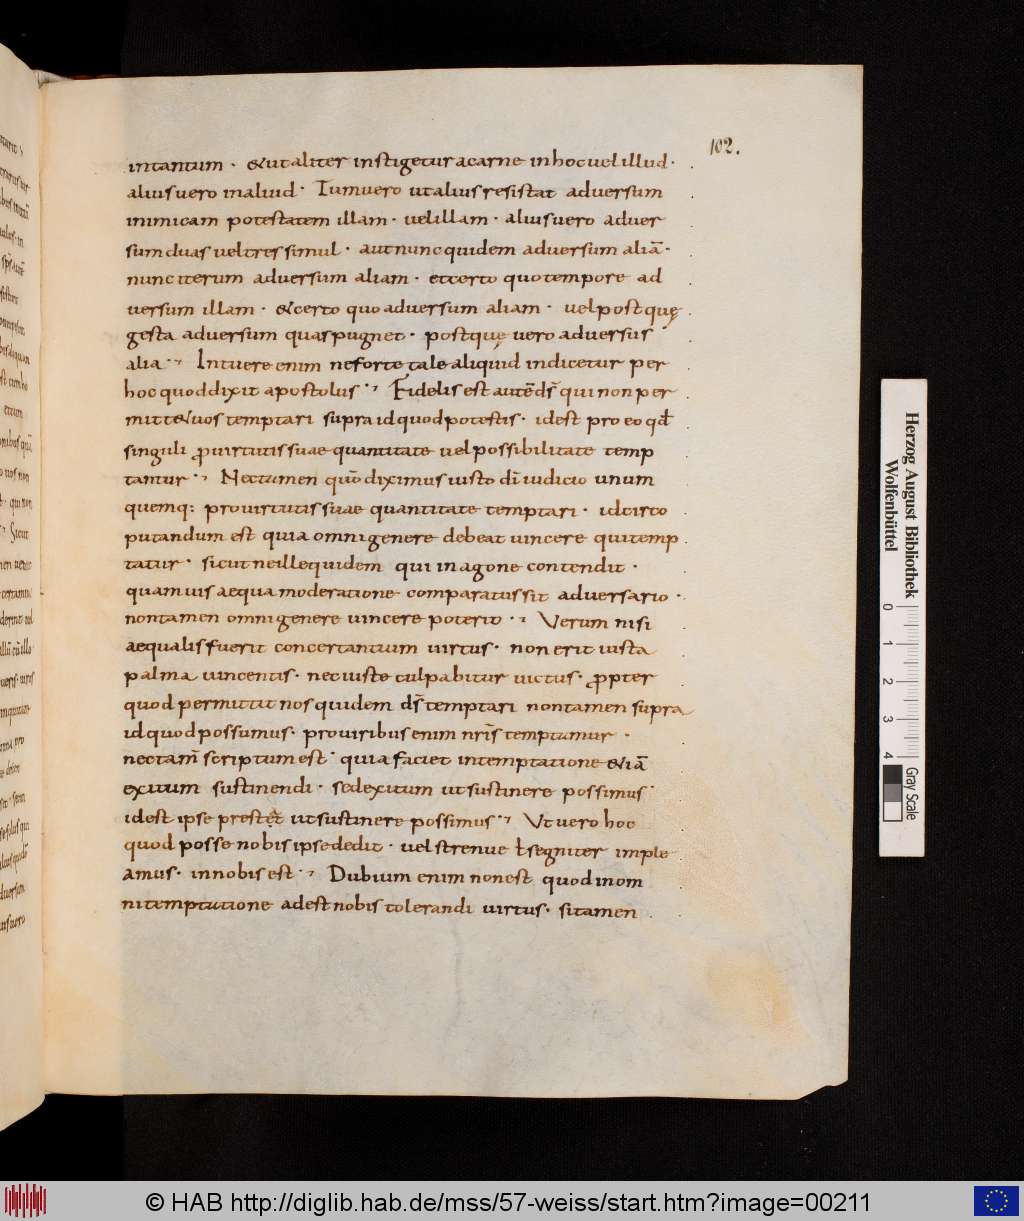 102.
intantum · & ut aliter instigetur a carne in hoc vel illud ·
alius vero in aliud · Tum vero ut alius resistat adversum
inimicam potestatem illam · vel illam · alius vero adver
sum duas vel tres simul · aut nunc quidem adversum aliā ·
nunc iterum adversum aliam · et certo quo tempore ad
versum illam · & certo quo adversum aliam · vel post quę
gesta adversum quas pugnet · post quę vero adversus
alia · Intuere enim ne forte tale aliquid indicetur per
hoc quod dixit apostolus · Fidelis est autē ds̄ qui non per
mitt& vos temptari supra id quod potestis · id est pro eo qđ
singuli ꝓ virtutis suae quantitate vel possibilitate temp
tantur · Nec tamen quō diximus iusto dī iudicio unum
quemq; pro virtutis suae quantitate temptari · idcirco
putandum est quia omni genere debeat vincere qui temp
tatur · sicut ne ille quidem qui in agone contendit ·
quamvis aequa moderatione comparatus sit adversario ·
non tamen omni genere vincere poterit · Verum nisi
aequalis fuerit concertantium virtus · non erit iusta
palma vincentis · nec iuste culpabitur victus · ꝓpter
quod permittit nos quidem ds̄ temptari non tamen supra
id quod possumus · pro viribus enim nr̄is temptamur ·
nec tam̄ scriptum est · quia faciet in temptatione & iā
exitum sustinendi · sed exitum ut sustinere possimus ·
id est ipse prestet ut sustinere possimus · Ut vero hoc
quod posse nobis ipse dedit · vel strenue ł segniter imple
amus · in nobis est · Dubium enim non est quod in om
ni temptatione adest nobis tolerandi virtus · si tamen
Herzog August Bibliothek
Wolfenbüttel
0 1 2 3 4
Gray Scale
© HAB http://diglib.hab.de/mss/57-weiss/start.htm?image=00211